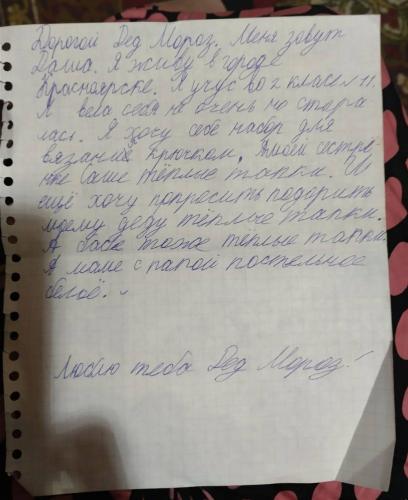 Дорогой Дед Мороз. Меня зовут
Даша. Я живу в городе
Красноярске. Я учус во 2 класе л 11.
Я вела себя не очень но стора
лась. Я хочу себе набор для
вязание крючком, моей сестрё-
нке Саше тёплые тапки. И
ещё хочу попросить подарить
моему деду тёплые тапки.
А бабе тоже тёплые тапки.
А маме с папой постельное
белоё.
Люблю тебя Дед Мороз!